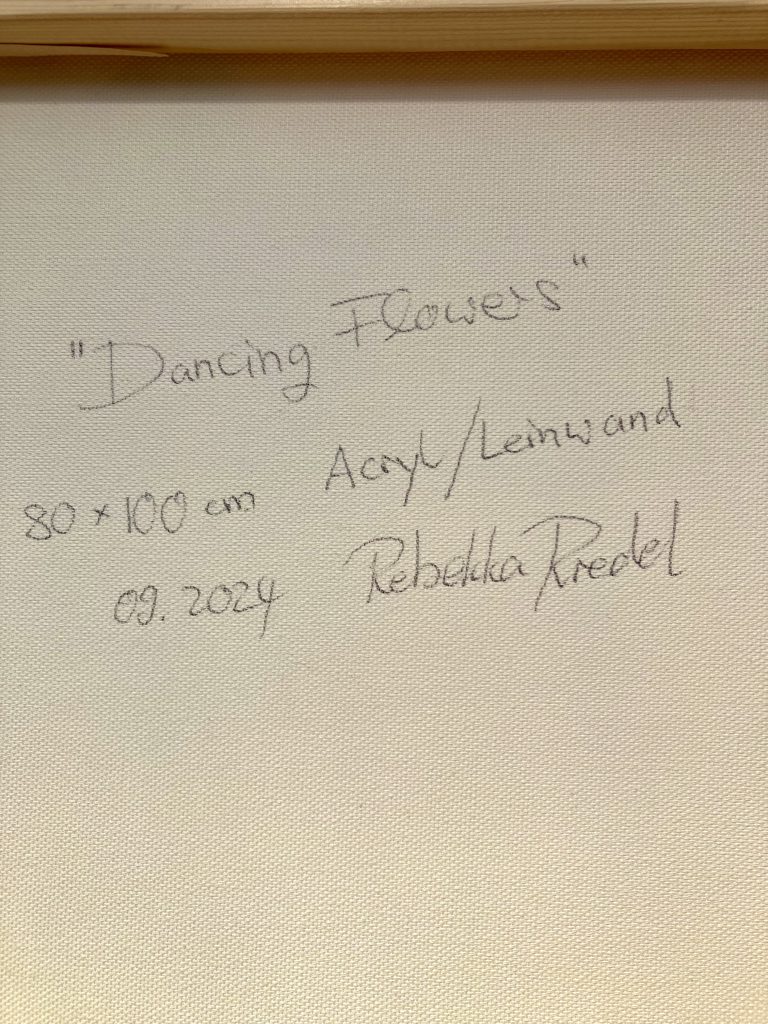 "Dancing Flowers"
80 x 100 cm Acryl/Leinwand
09.2024 Rebekka Riedel